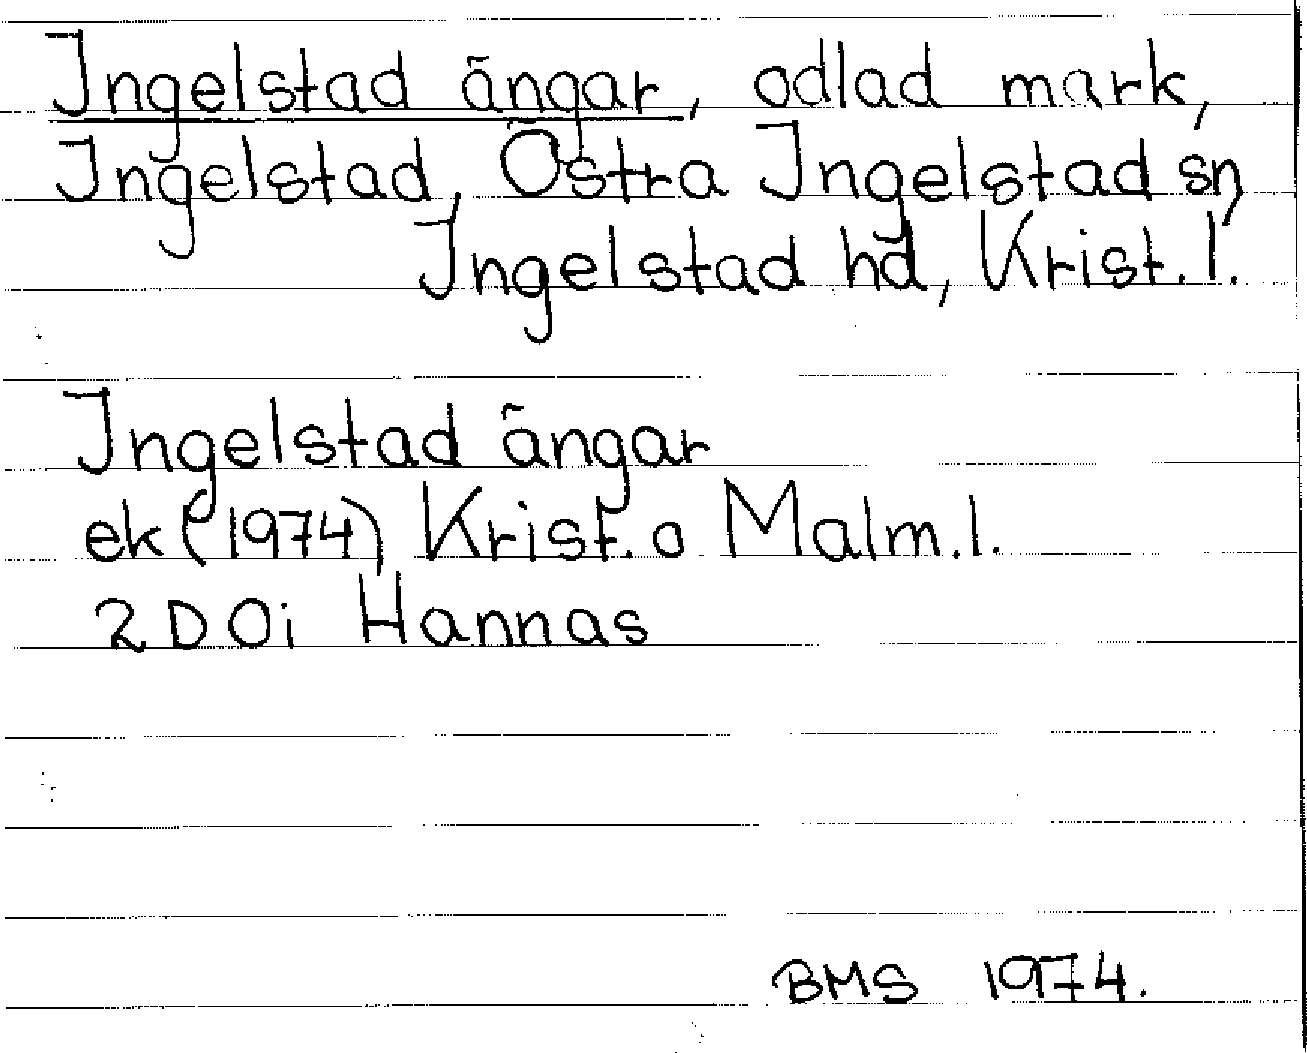 Ingelstad ängar, odlad mark,
Ingelstad, Östra Ingelstad sn,
Ingelstad hd, Krist. l.
Ingelstad ängar
ek (1974) Krist. o Malm. l.
2 D 0i Hannas
BMS 1974.